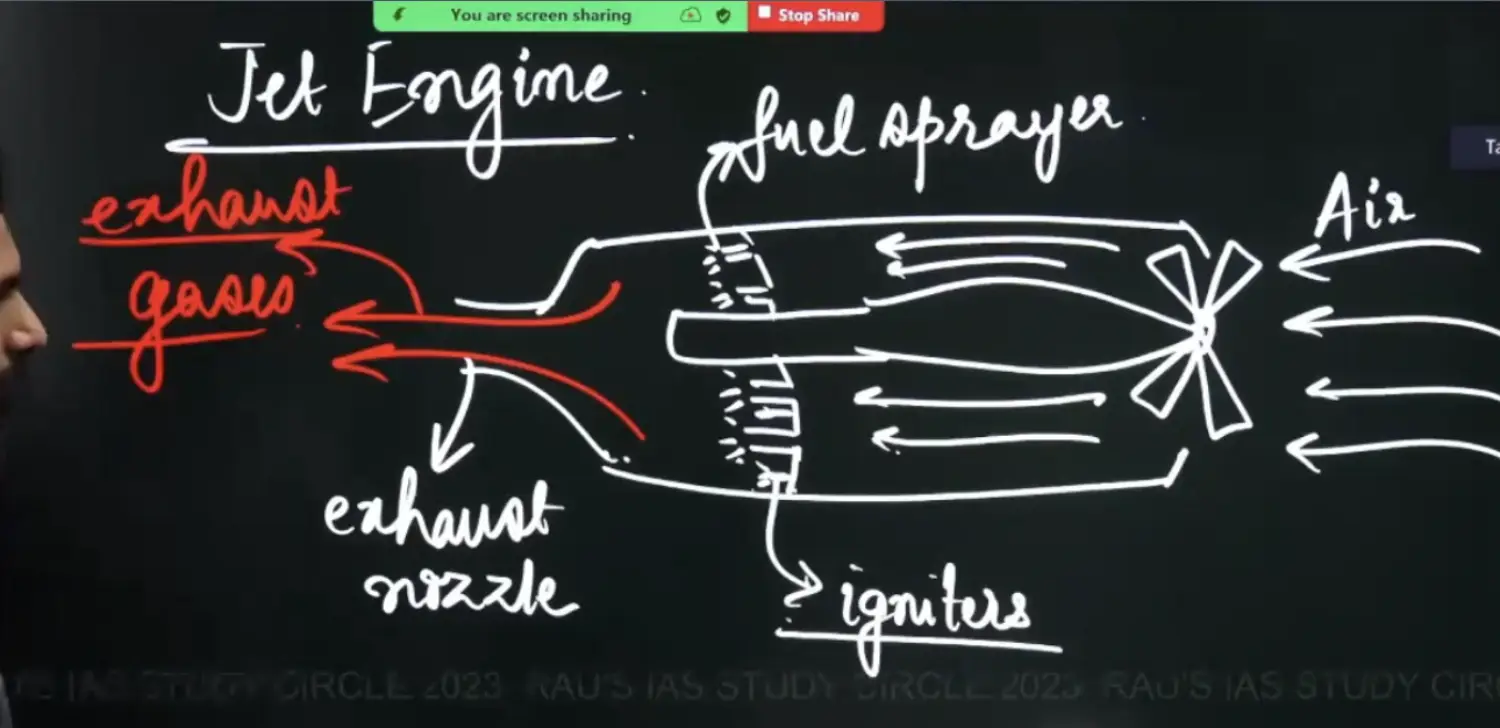 You are screen sharing
Stop Share
Jet Engine
fuel sprayer
Ta
Air
exhaust
gases
exhaust
nozzle
igniters
IAS STUDY CIRCLE 2023 RAU'S IAS STUDY CIRCLE 2023 RAU'S IAS STUDY CIR